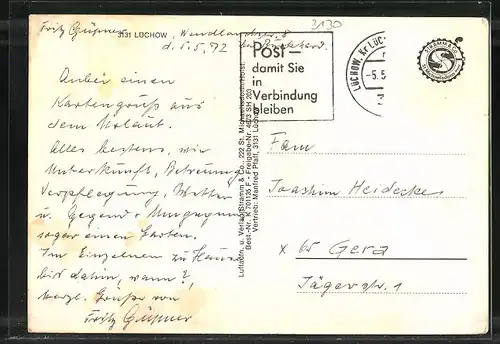 3130
Fritz Güßner, Wendlandstr. 8
3131 LÜCHOW
d. 5.5.72
Post –
damit Sie
in
Verbindung
bleiben
LÜCHOW, Kr LÜC
-5.5
STRAMM & CO.
Außer einen
Kartengruß aus
dem Urlaub.
Alles bestens, wie
Unterkunft, Betreuung
Verpflegung, Wetter
u. Gegend + Umgegung
sogar einen Garten.
Im Einzelnen zu Hause
Bis dahin, wann?,
herzl. Grüße von
Fritz Güßner
Luftaufn. u. Verlag Stramm & Co., 222 St. Michaelisdonn/Holst.
Best.-Nr. K 701135 F • Freigabe-Nr. 4673 SH 203
Vertrieb: Manfred Pfaff, 3131 Lüchow
Fam
Joachim Heidecke
x 65 Gera
Jägerstr. 1